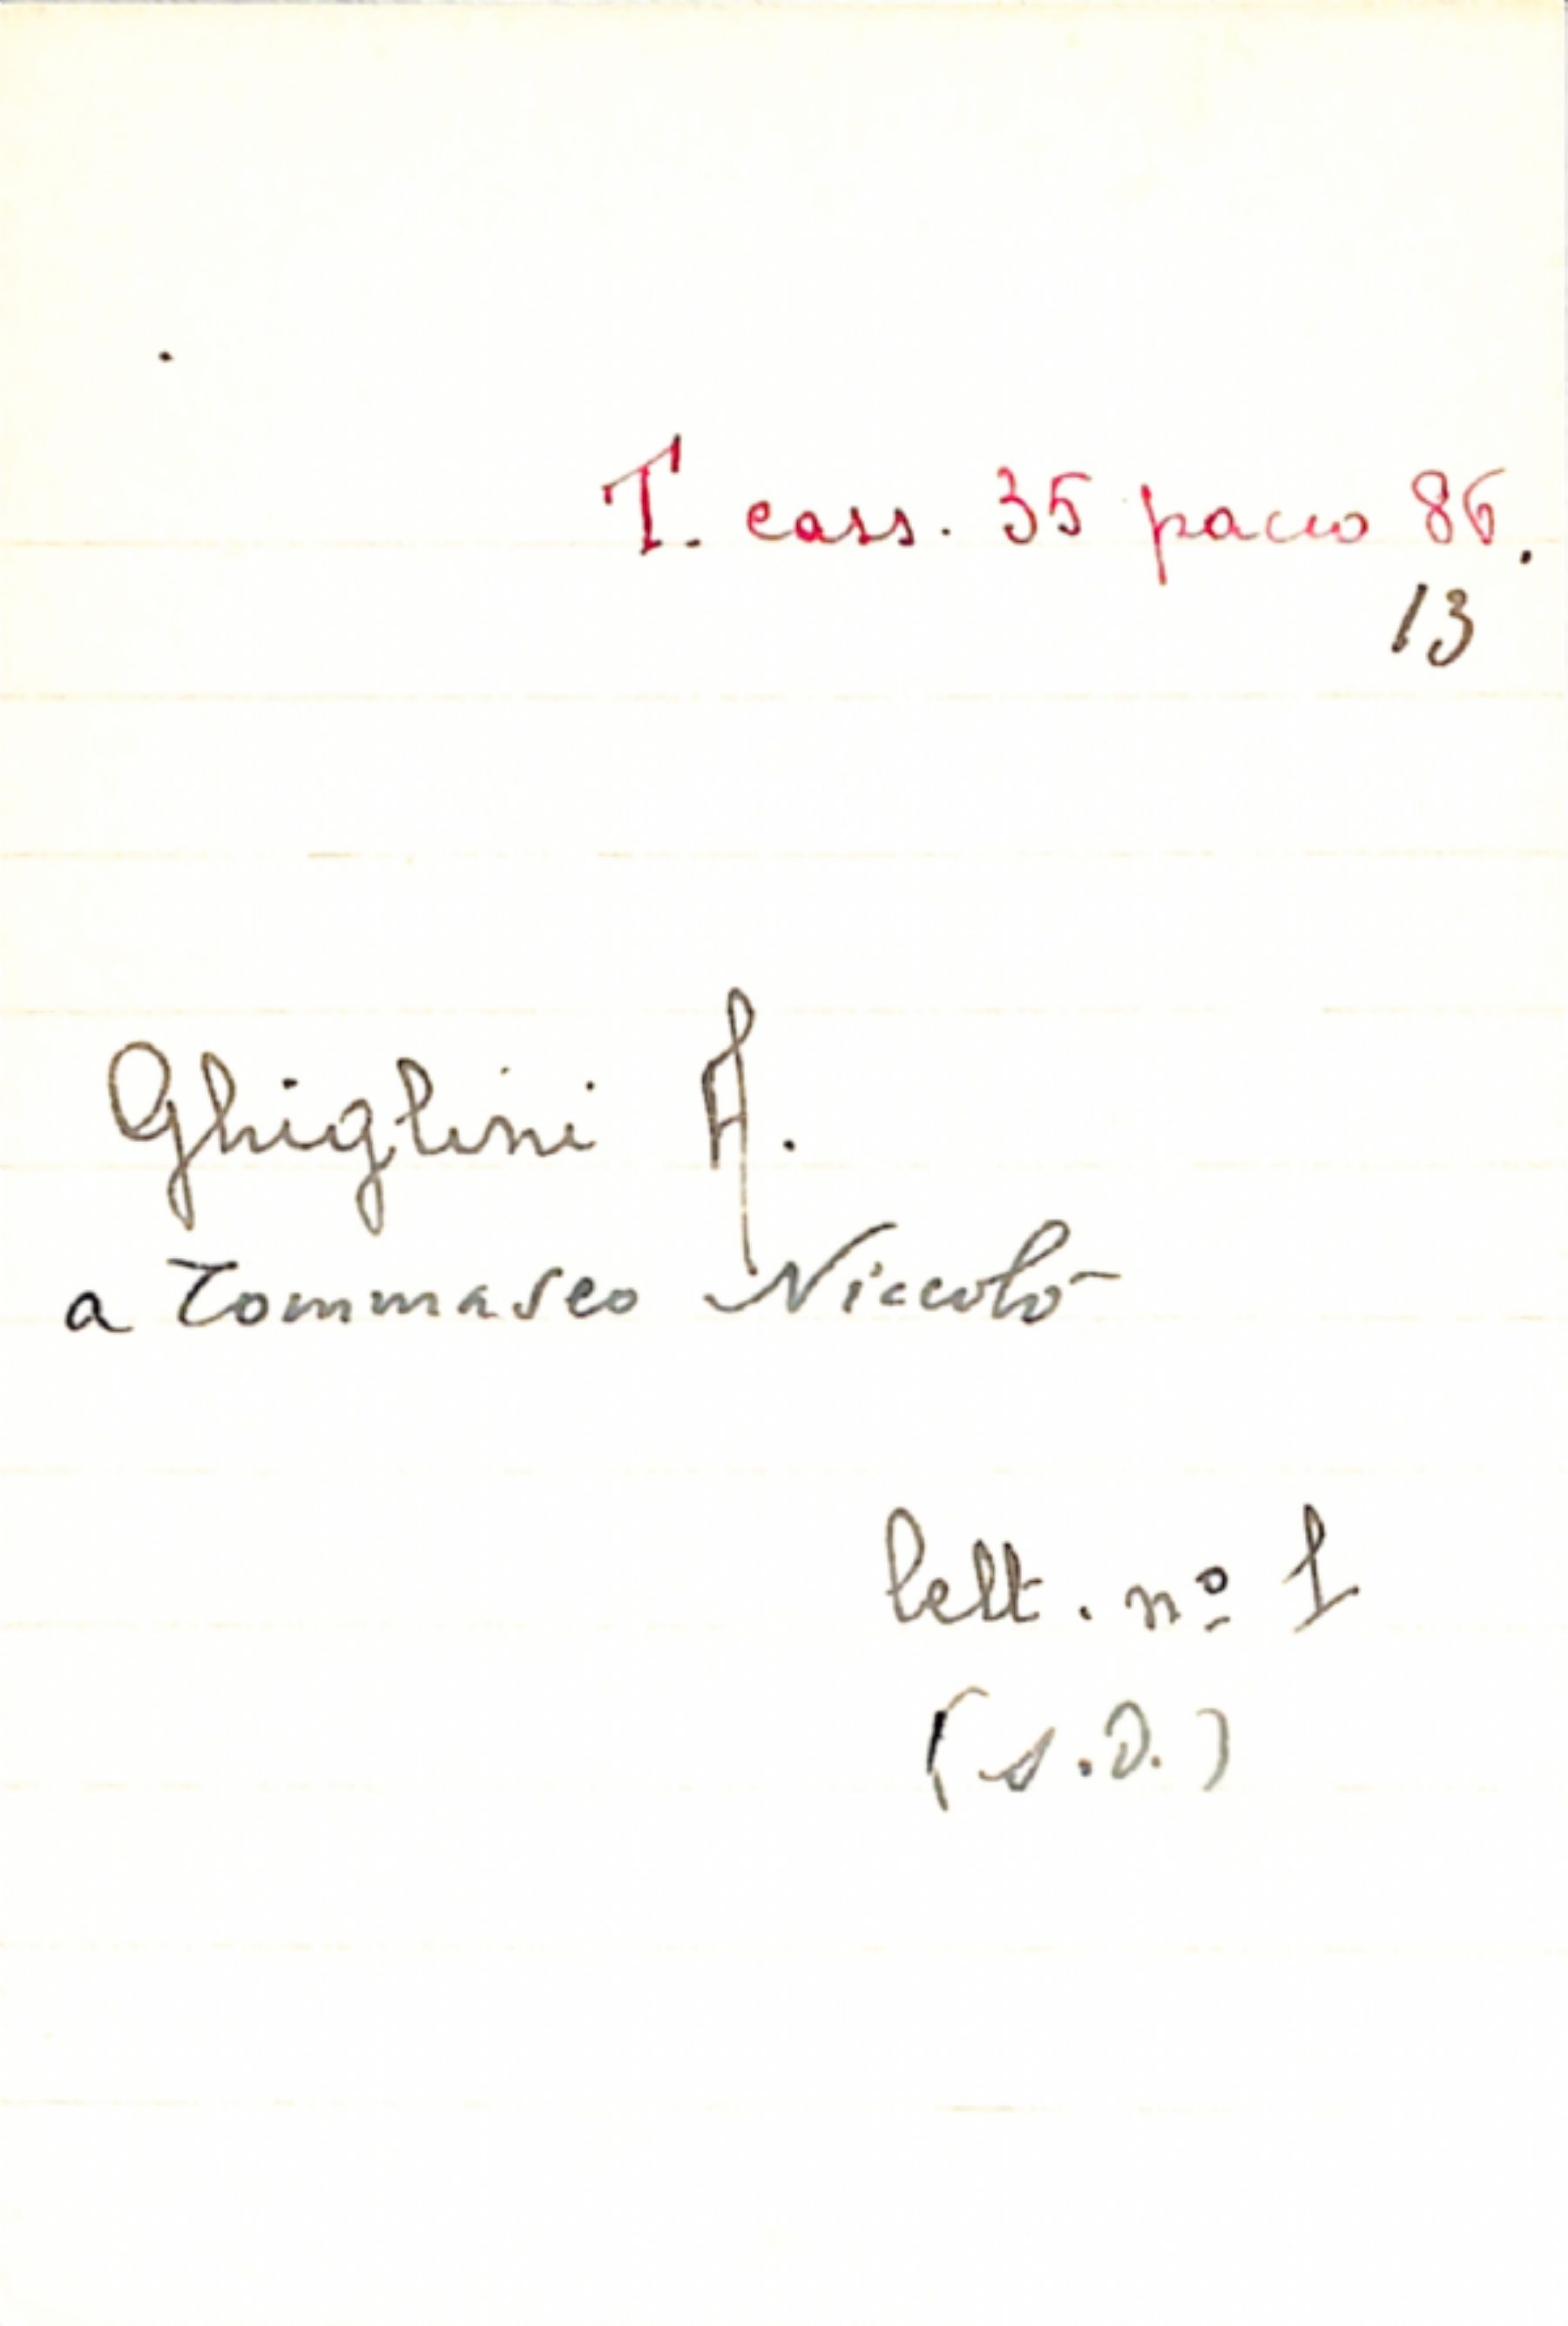 T. cass. 35 pacco 86.
13
Ghiglini A.
a Tommaseo Niccolò
lett. nº 1
(s.D.)